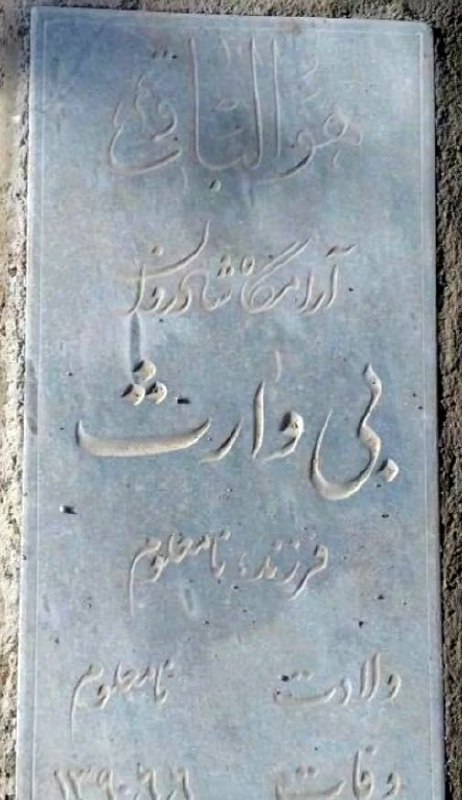 هو الباقی
آرامگاه شادروان
بی وارث
فرزند، نامعلوم
ولادت نامعلوم
وفات ۱۳۹۰.۶.۶